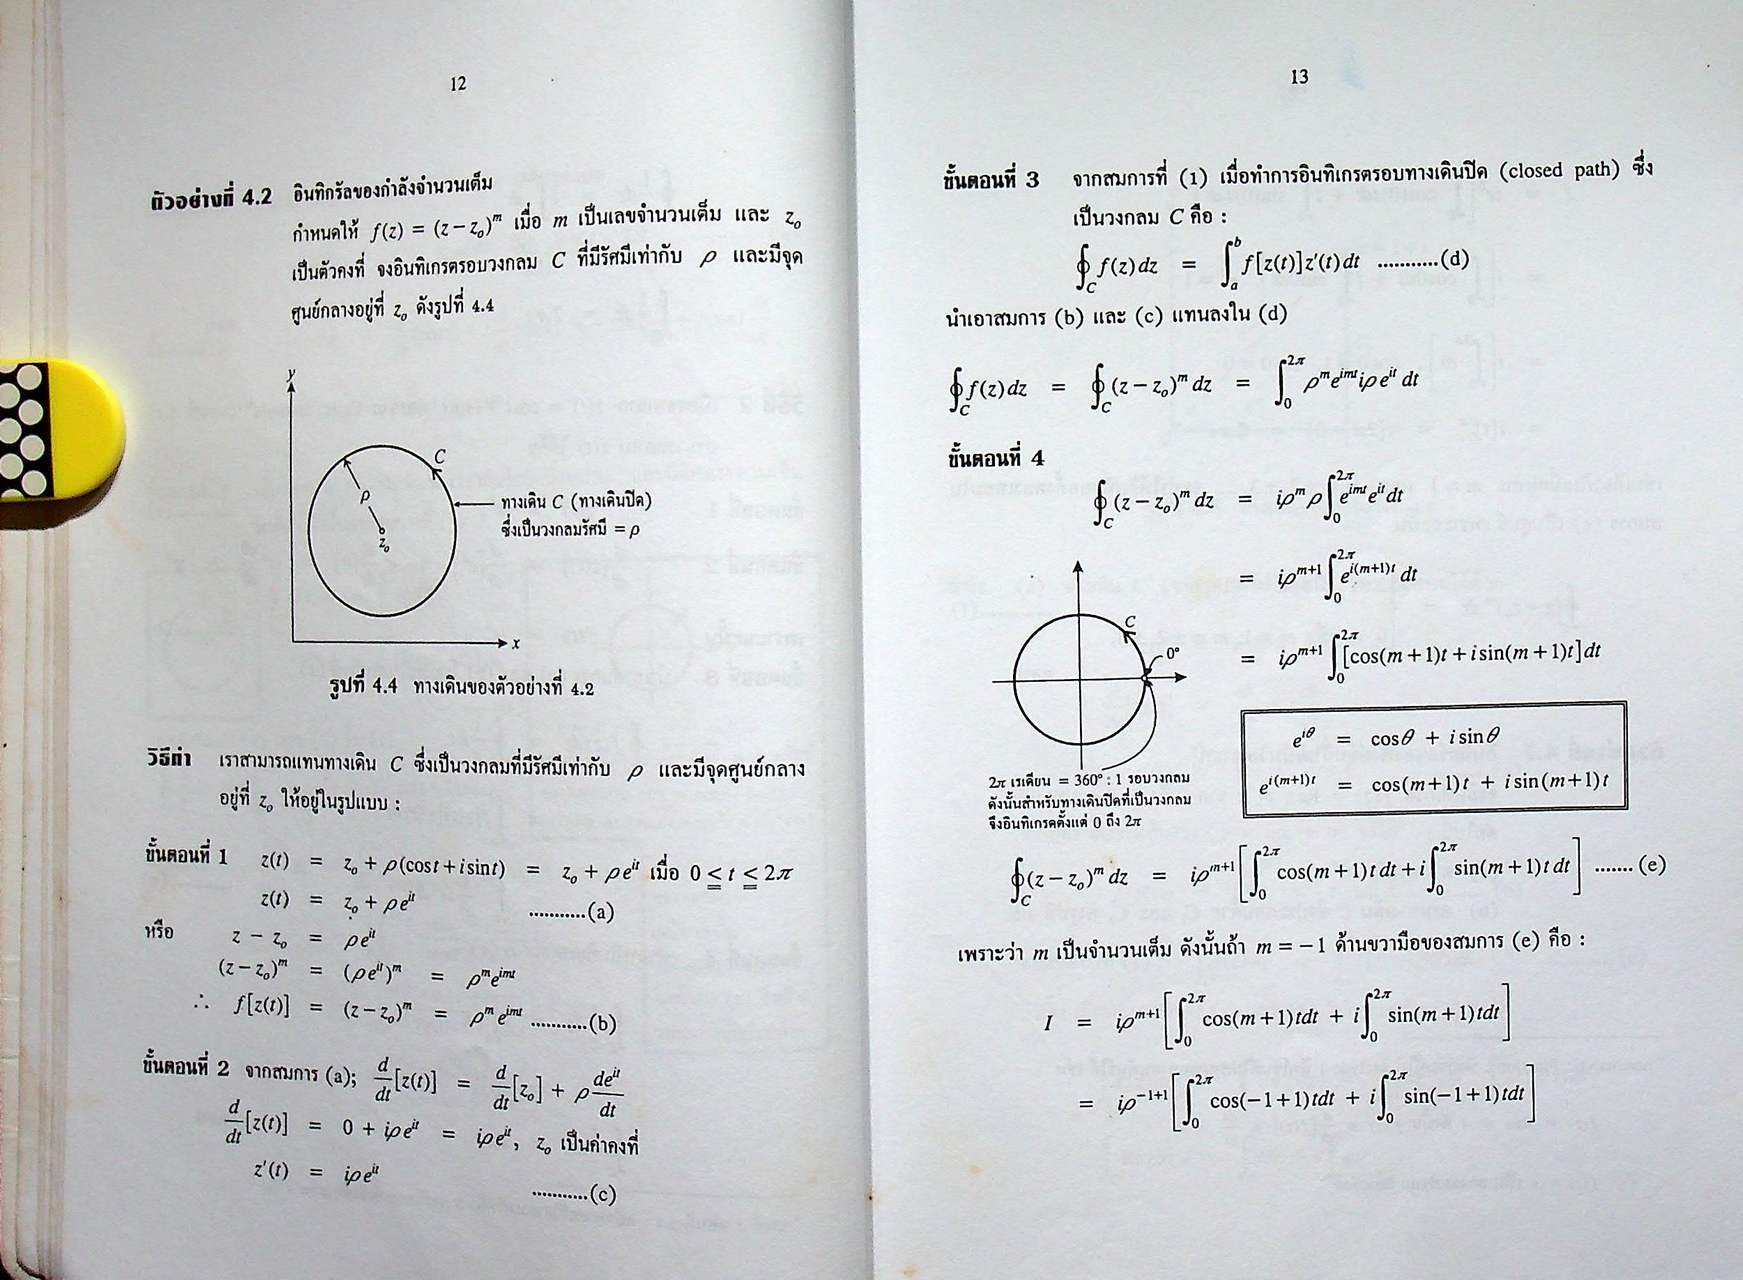 12
ตัวอย่างที่ 4.2 อินทิกรัลของกำลังจำนวนเต็ม
กำหนดให้ f(z) = (z − z₀)ᵐ เมื่อ m เป็นเลขจำนวนเต็ม และ z₀
เป็นตัวคงที่ จงอินทิเกรตรอบวงกลม C ที่มีรัศมีเท่ากับ ρ และมีจุด
ศูนย์กลางอยู่ที่ z₀ ดังรูปที่ 4.4
y
C
ρ
z₀
ทางเดิน C (ทางเดินปิด)
ซึ่งเป็นวงกลมรัศมี = ρ
x
รูปที่ 4.4 ทางเดินของตัวอย่างที่ 4.2
วิธีทำ เราสามารถแทนทางเดิน C ซึ่งเป็นวงกลมที่มีรัศมีเท่ากับ ρ และมีจุดศูนย์กลาง
อยู่ที่ z₀ ให้อยู่ในรูปแบบ :
ขั้นตอนที่ 1 z(t) = z₀ + ρ(cos t + i sin t) = z₀ + ρe^{it} เมื่อ 0 ≦ t ≦ 2π
z(t) = z₀ + ρe^{it} ...........(a)
หรือ z − z₀ = ρe^{it}
(z − z₀)ᵐ = (ρe^{it})ᵐ = ρᵐe^{imt}
∴ f[z(t)] = (z − z₀)ᵐ = ρᵐe^{imt} ...........(b)
ขั้นตอนที่ 2 จากสมการ (a); d/dt[z(t)] = d/dt[z₀] + ρ de^{it}/dt
d/dt[z(t)] = 0 + iρe^{it} = iρe^{it}, z₀ เป็นค่าคงที่
z′(t) = iρe^{it} ...........(c)
13
ขั้นตอนที่ 3 จากสมการที่ (1) เมื่อทำการอินทิเกรตรอบทางเดินปิด (closed path) ซึ่ง
เป็นวงกลม C คือ :
∮_C f(z)dz = ∫_a^b f[z(t)]z′(t)dt ...........(d)
นำเอาสมการ (b) และ (c) แทนลงใน (d)
∮_C f(z)dz = ∮_C (z − z₀)ᵐ dz = ∫_0^{2π} ρᵐe^{imt}iρe^{it} dt
ขั้นตอนที่ 4
∮_C (z − z₀)ᵐ dz = iρᵐρ∫_0^{2π} e^{imt}e^{it}dt
= iρ^{m+1}∫_0^{2π} e^{i(m+1)t} dt
= iρ^{m+1}∫_0^{2π} [cos(m+1)t + i sin(m+1)t]dt
C
0°
2π เรเดียน = 360° : 1 รอบวงกลม
ดังนั้นสำหรับทางเดินปิดที่เป็นวงกลม
จึงอินทิเกรตตั้งแต่ 0 ถึง 2π
e^{iθ} = cosθ + i sinθ
e^{i(m+1)t} = cos(m+1)t + i sin(m+1)t
∮_C (z − z₀)ᵐ dz = iρ^{m+1}[∫_0^{2π} cos(m+1)t dt + i∫_0^{2π} sin(m+1)t dt] .......(e)
เพราะว่า m เป็นจำนวนเต็ม ดังนั้นถ้า m = −1 ด้านขวามือของสมการ (e) คือ :
I = iρ^{m+1}[∫_0^{2π} cos(m+1)tdt + i∫_0^{2π} sin(m+1)tdt]
= iρ^{−1+1}[∫_0^{2π} cos(−1+1)tdt + i∫_0^{2π} sin(−1+1)tdt]